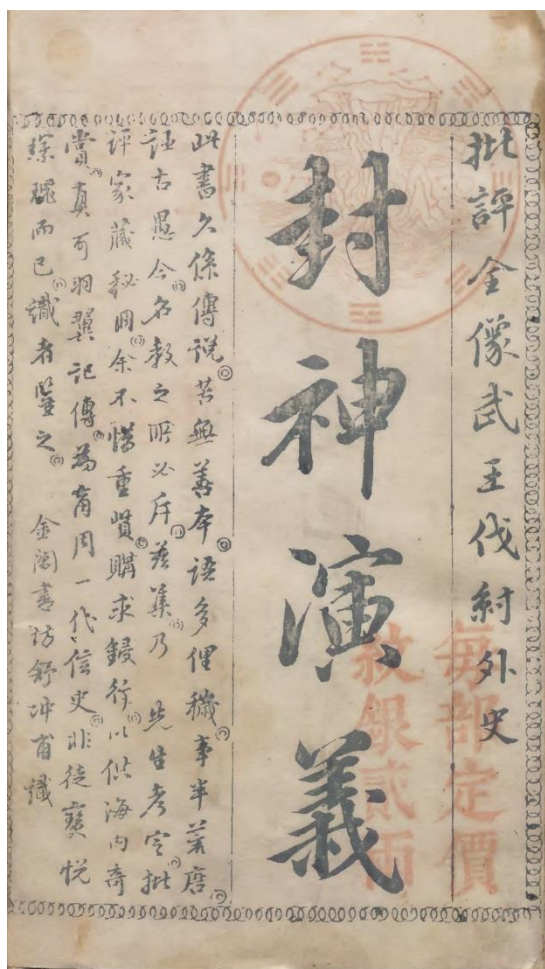 批評全像武王伐紂外史
封神演義
此書久係傳說苦無善本語多俚穢事半荒唐
誣古愚今名教之所必斥茲集乃 先生考定批
評家藏秘冊余不惜重貲購求鋟行以供海內奇
賞真可羽翼記傳為商周一代信史非徒寶悅
琛瑰而已識者鑒之 金閶書坊舒冲甫識
每部定價
紋銀貳兩